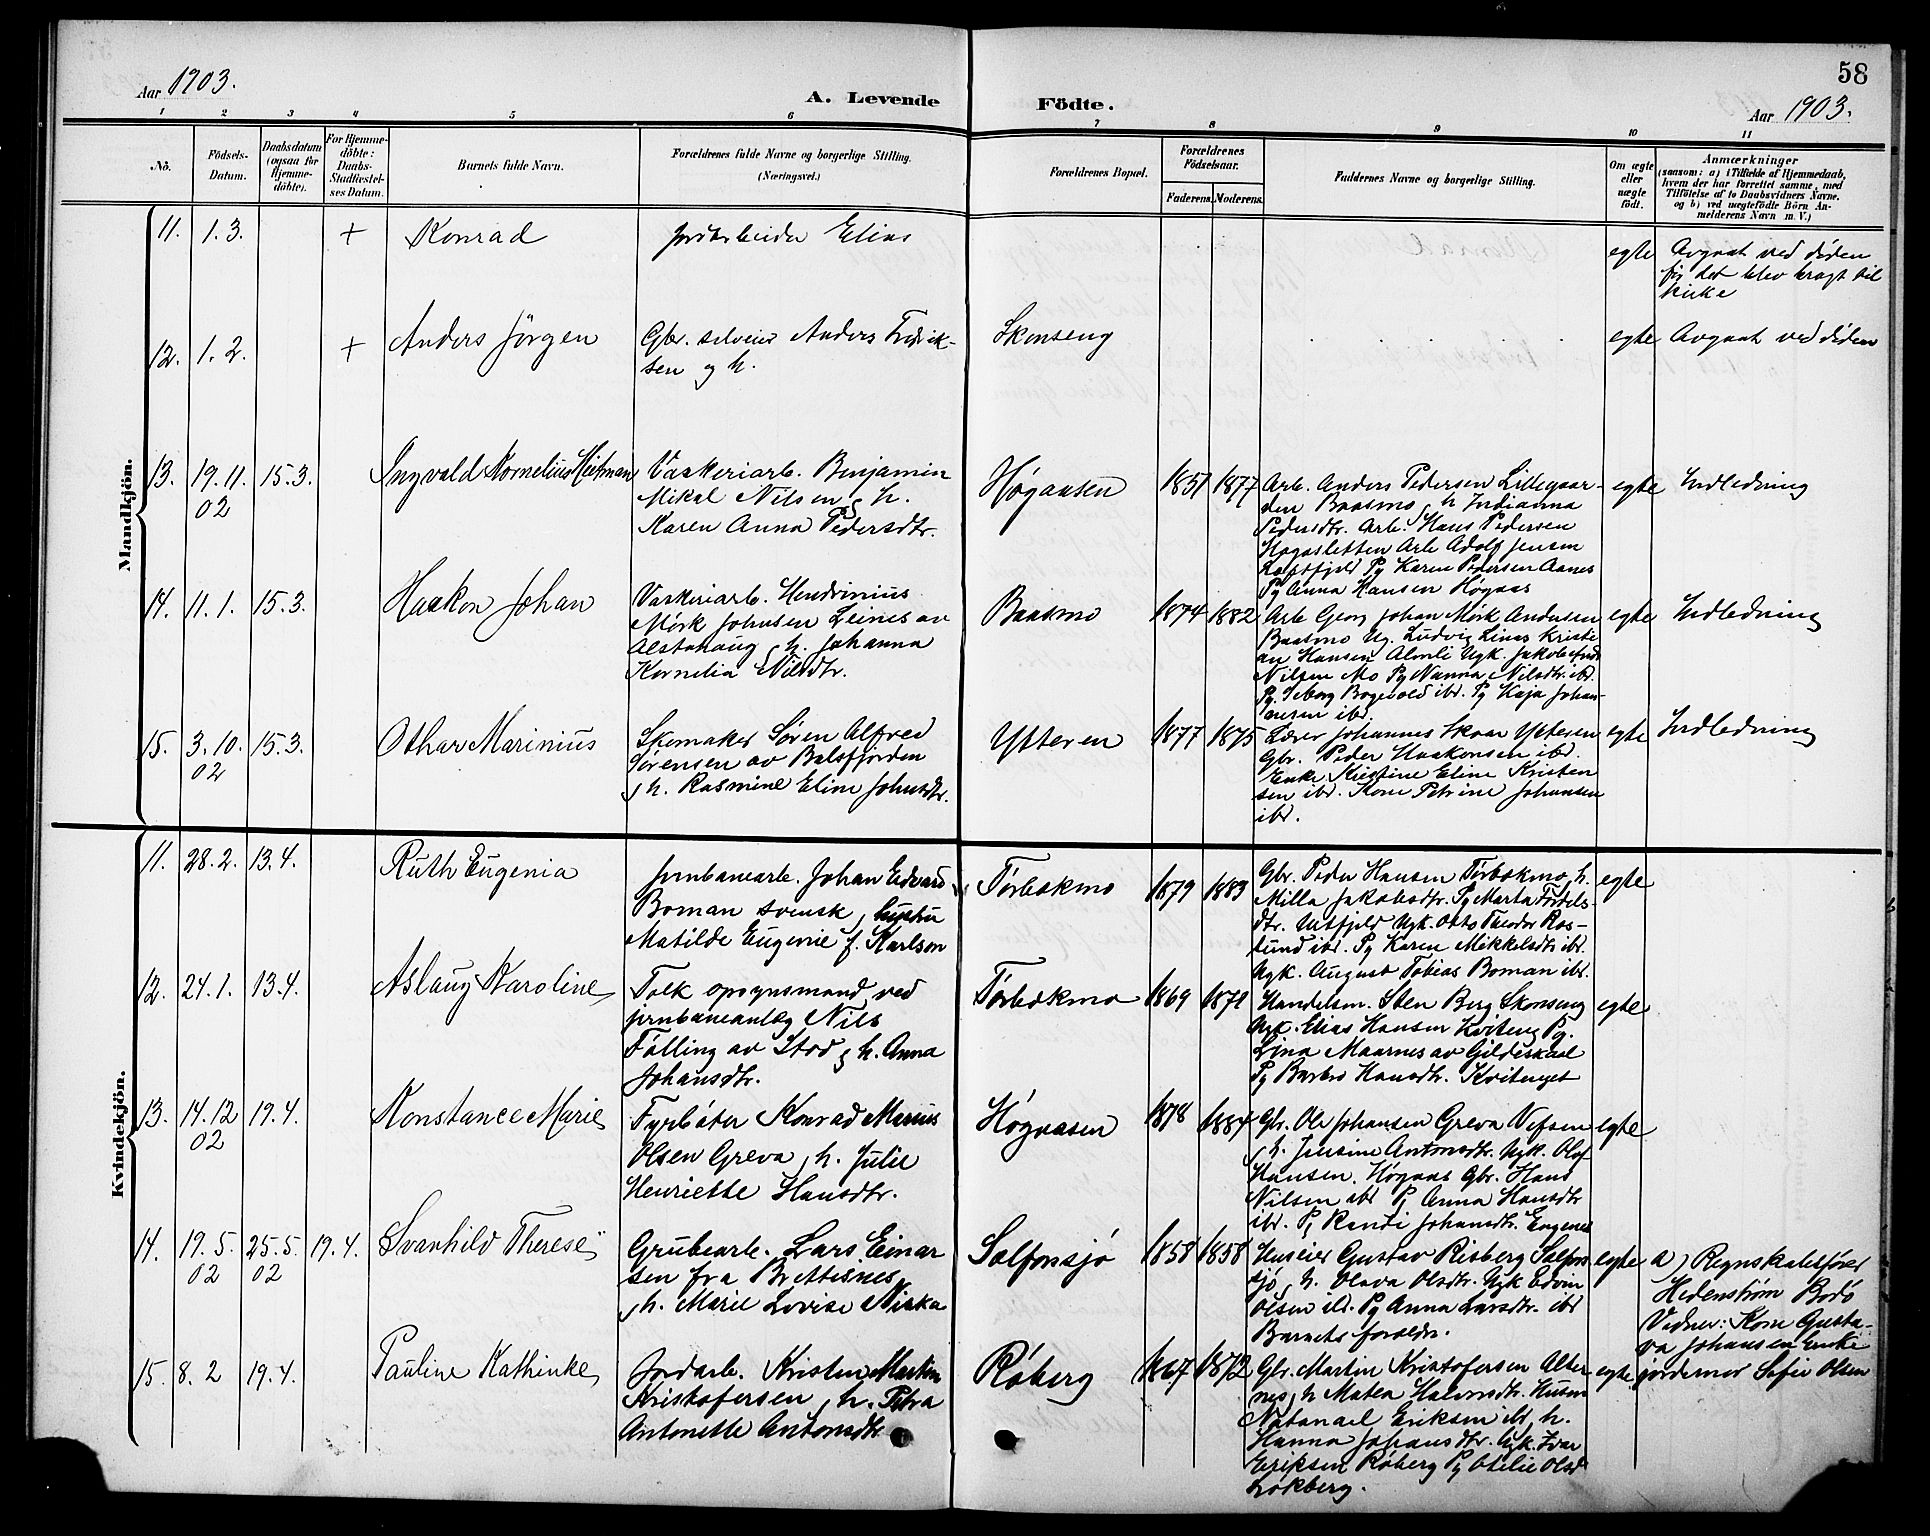 58
Aar 1903.
A. Levende Födte.
Aar 1903.
1 2 3 4 5 6 7 8 9 10 11
No.
Födsels-
Datum.
Daabsdatum
(ogsaa for
Hjemme-
döbte).
For Hjemme-
döbte:
Daabs-
Stadfæstel-
ses Datum.
Barnets fulde Navn.
Forældrenes fulde Navne og borgerlige Stilling.
(Næringsvei.)
Forældrenes Bopæl.
Forældrenes
Födselsaar.
Faderens. Moderens.
Faddernes Navne og borgerlige Stilling.
Om ægte
eller
uægte
födt.
Anmærkninger
(saasom: a) i Tilfælde af Hjemmedaab,
hvem der har forrettet samme, med
Tilföielse af to Daabsvidners Navne.
og b) ved uægtefödte Börn An-
melderens Navn m. V.)
Mandkjön.
11. 1.3. + Konrad
Elias
egte
Avgaat ved döden
för det blev bragt til
kirke
12. 1.2. + Anders Jörgen
Gbr. selveier Anders Fredrik-
sen og h.
Skonseng
egte
Avgaat ved döden
13. 19.11. 02 15.3.
Ingvald Kornelius Heitman
Vaskeriarb. Benjamin
Mikal Nilsen, h.
Karen Anna Pedersdtr.
Høgaasen
1851 1877
Arb. Anders Pedersen Lillegaar-
den Baasmo, h Indianna
Pedersdtr. Arb. Hans Pedersen
Høgasletten Arb Adolf Jensen
Pg Karen Pedersen Aanes
Pg Anna Hansen Høgaas
egte
Indledning
14. 11.1. 15.3.
Haakon Johan
Vaskeriarb. Hendrinius
Mørk Johnsen Leines av
Alstahaug, h. Johanna
Kornelia Nilsdtr.
Baasmo
1874 1882
Arb Georg Johan Mørk Andersen
Baasmo Ug. Ludvig Linus Kristi
an Hansen Almli Ugk. Jakob
Nilsen Mo Pg Nanna Nilsdtr. ibd.
Pg. ibd. Pg Kaja Johan-
nesen ibd.
egte
Indledning
15. 3.10. 02 15.3.
Othar Marinius
Skomaker Sören Alfred
Sörensen av Balsfjorden
, h. Rasmine Eline Johnsdtr.
Ytteren
1877 1875
Lærer Johannes Skaar Ytteren
Gbr. Peder Haakonsen ibd.
Enke Kirstine Eline Kristen
sen ibd. Kone Petrine Johansen
ibd.
egte
Indledning
Kvindekjön.
11. 28.2. 13.4.
Ruth Eugenia
jernbanearb. Johan Edvard
Boman svensk, hustru
Matilde Eugenie f. Karlson
Törbækmo
1879 1883
Gbr. Peder Hansen Törbækmo, h.
Milla Jakobsdtr. Pg Marta Tordels-
dtr. Utfjeld Ugk. Otto Theodor Ros-
lund ibd. Pg Karen Mikkelsdtr ibd.
Ugk. August Tobias Boman ibd.
egte
12. 24.1. 13.4.
Aslaug Karoline
Tolk opsynsmand ved
jernbaneanlæg Nils
Fölling av Stod, h. Anna
Johansdtr.
Törbækmo
1869 1871
Handelsm. Sten Berg Skonseng
Ugk. Elias Hansen Kviteng Pg.
Lina Maarnes av Gildeskaal
Pg Barbro Hansdtr. Kvitenget
egte
13. 14.12 02 19.4.
Konstance Marie
Fyrböter Konrad Marius
Olsen Greva, h. Julie
Henriette Hansdtr.
Høgaasen
1878 1884
Gbr. Ole Johansen Greva Vefsen
, h. Jensine Antonsdtr. Ugk. Olaf
Hansen. Høgaas Gbr. Hans
Nilsen ibd Pg Anna Hansdtr
ibd. Pg Randi Johansdtr. Engenes
egte
14. 19.5. 02 25.5. 02 19.4.
Svanhild Therese
Grubearb. Lars Einar
sen fra Brettesnes
, h. Marie Lovise Niska
Solfonsjö
1858 1858
Huseier Gustav Risberg Solfon
sjö, h. Olava Olsdtr. Ugk Edvin
Olsen ibd. Pg Anna Larsdtr. ibd
Barnets foreldre.
egte
a) Regnskabsförer
Hedenström Bodö
Vidner: Kone Gusta-
va Johansen Enke
jordemor Sofie Olsen
15. 8.2 19.4.
Pauline Kathinke
Jordarb. Kristen Martin
Kristofersen, h. Petra
Antonette Antonsdtr.
Røberg
1867 1872
Gbr. Martin Kristofersen Alter
nes, h Matea Halvorsdtr. Husm
Natanael Eriksen ibd, h.
Hanna Johansdtr. Ugk. Ivar
Eriksen Røberg Pg Otelie Olsd
Løkberg.
egte